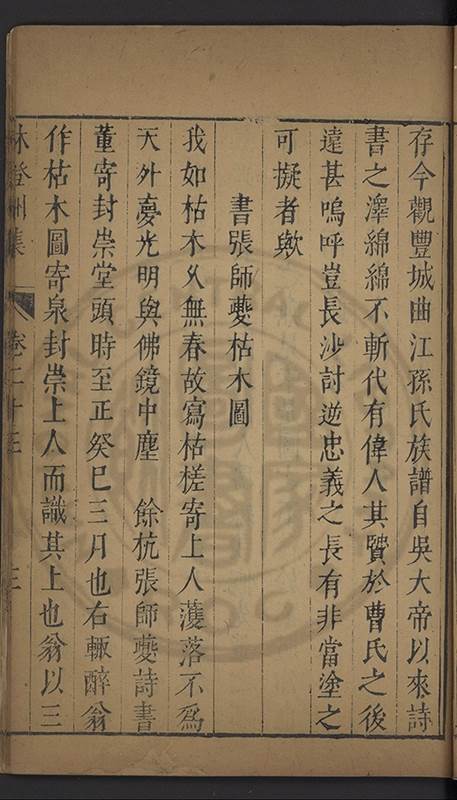 存今觀豐城曲江孫氏族譜自吳大帝以來詩
書之澤綿綿不斬代有偉人其賢於曹氏之後
遠甚嗚呼豈長沙討逆忠義之長有非當塗之
可擬者歟
書張師夔枯木圖
我如枯木久無春故寫枯槎寄上人濩落不為
天外憂光明與佛鏡中塵 餘杭張師夔詩書
董寄封崇堂頭時至正癸巳三月也右輙醉翁
作枯木圖寄泉封崇上人而識其上也翁以三
林登州集 卷二十三 三